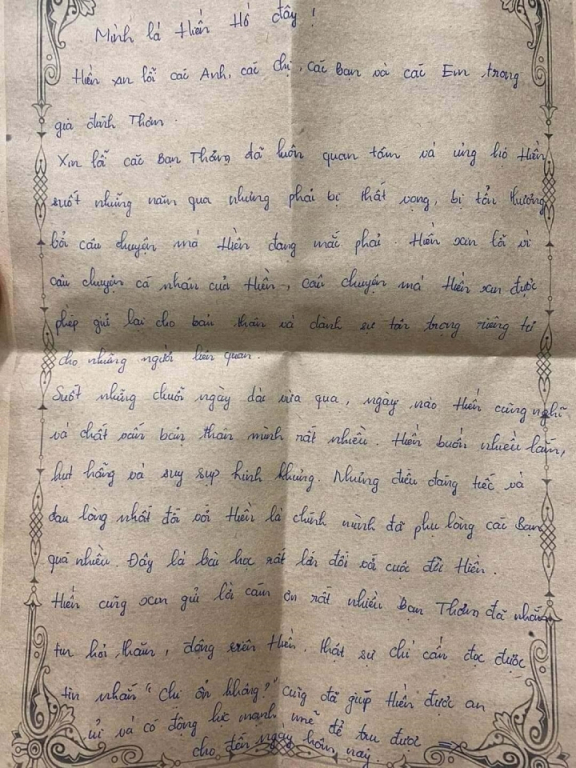 Mình là Hiền Hồ đây !
Hiền xin lỗi các Anh, các chị, các Bạn và các Em trong
gia đình Thơm.
Xin lỗi các Bạn Thơm đã luôn quan tâm và ủng hộ Hiền
suốt những năm qua nhưng phải bị thất vọng, bị tổn thương
bởi câu chuyện mà Hiền đang mắc phải. Hiền xin lỗi vì
câu chuyện cá nhân của Hiền, câu chuyện mà Hiền xin được
phép giữ lại cho bản thân và dành sự tôn trọng riêng tư
cho những người liên quan.
Suốt những chuỗi ngày dài vừa qua, ngày nào Hiền cũng nghĩ
và chất vấn bản thân mình rất nhiều. Hiền buồn nhiều lắm,
hụt hẫng và suy sụp kinh khủng. Những điều đáng tiếc và
đau lòng nhất đối với Hiền là chính mình đã phụ lòng các Bạn
quá nhiều. Đây là bài học rất lớn đối với cuộc đời Hiền.
Hiền cũng xin gửi lời cám ơn rất nhiều Bạn Thơm, đã nhắn
tin hỏi thăm, động viên Hiền. Thật sự chỉ cần đọc được
tin nhắn "chị ổn không?" cũng đã giúp Hiền được an
ủi và có động lực mạnh mẽ để trụ được
cho đến ngày hôm nay.